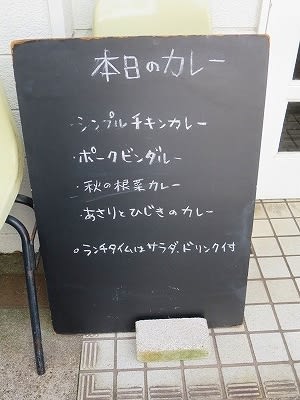 本日のカレー
・シンプルチキンカレー
・ポークビンダルー
・秋の根菜カレー
・あさりとひじきのカレー
○ランチタイムはサラダ、ドリンク付